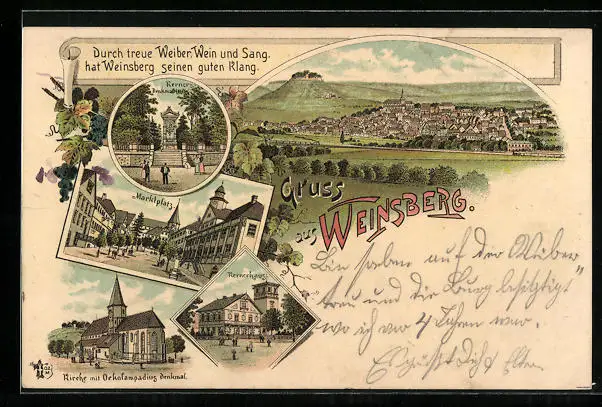 Durch treue Weiber, Wein und Sang.
hat Weinsberg seinen guten Klang.
Kerner-
Denkmal
Marktplatz
Gruss
aus WEINSBERG.
Kernerhaus
Kirche mit Oekolampadius denkmal.
Bin soeben auf der Weiber
treu und die Burg besichtigt
wo ich vor 4 Jahren war.